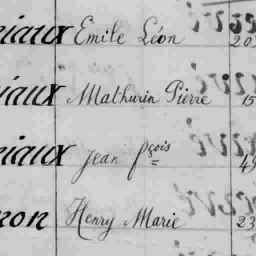 riaux Emile Léon 20
riaux Mathurin Pierre 15
riaux Jean fçois 49
non Henry Marie 23